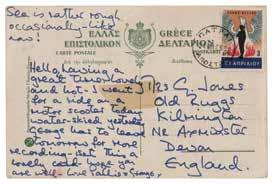 Sea is rather rough
occasionally - like
now!
ΕΛΛΑΣ
GRÈCE
ΕΠΙΣΤΟΛΙΚΟΝ
ΔΕΛΤΑΡΙΟΝ
CARTE POSTALE
Hello, having a
great time. Lovely
and hot - I went
for a ride on a
motor scooter today
water-skied yesterday
George has to leave
tomorrow for more
recording. But
lovely
are well. Love Patti & George.
Mrs G. Jones
Old Ruggs
Kilmington
Nr Axminster
Devon
England.
21 ΑΠΡΙΛΙΟΥ